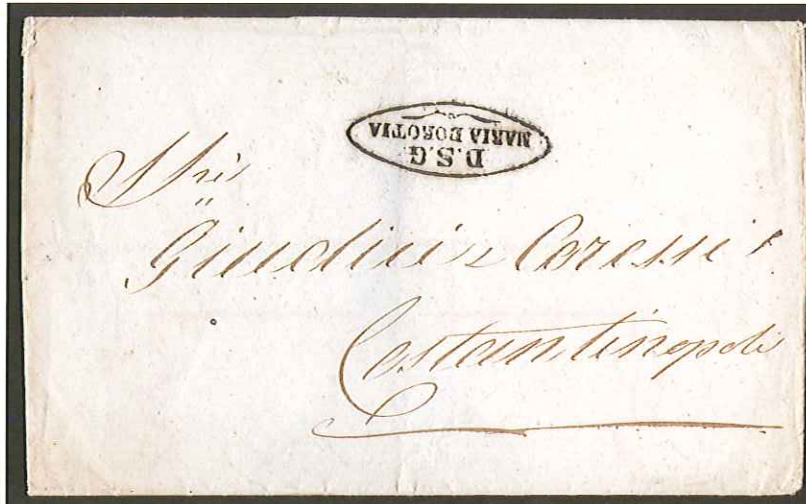 D.S.G.
MARIA DOROTIA
Giudici e Caressi
Costantinopoli